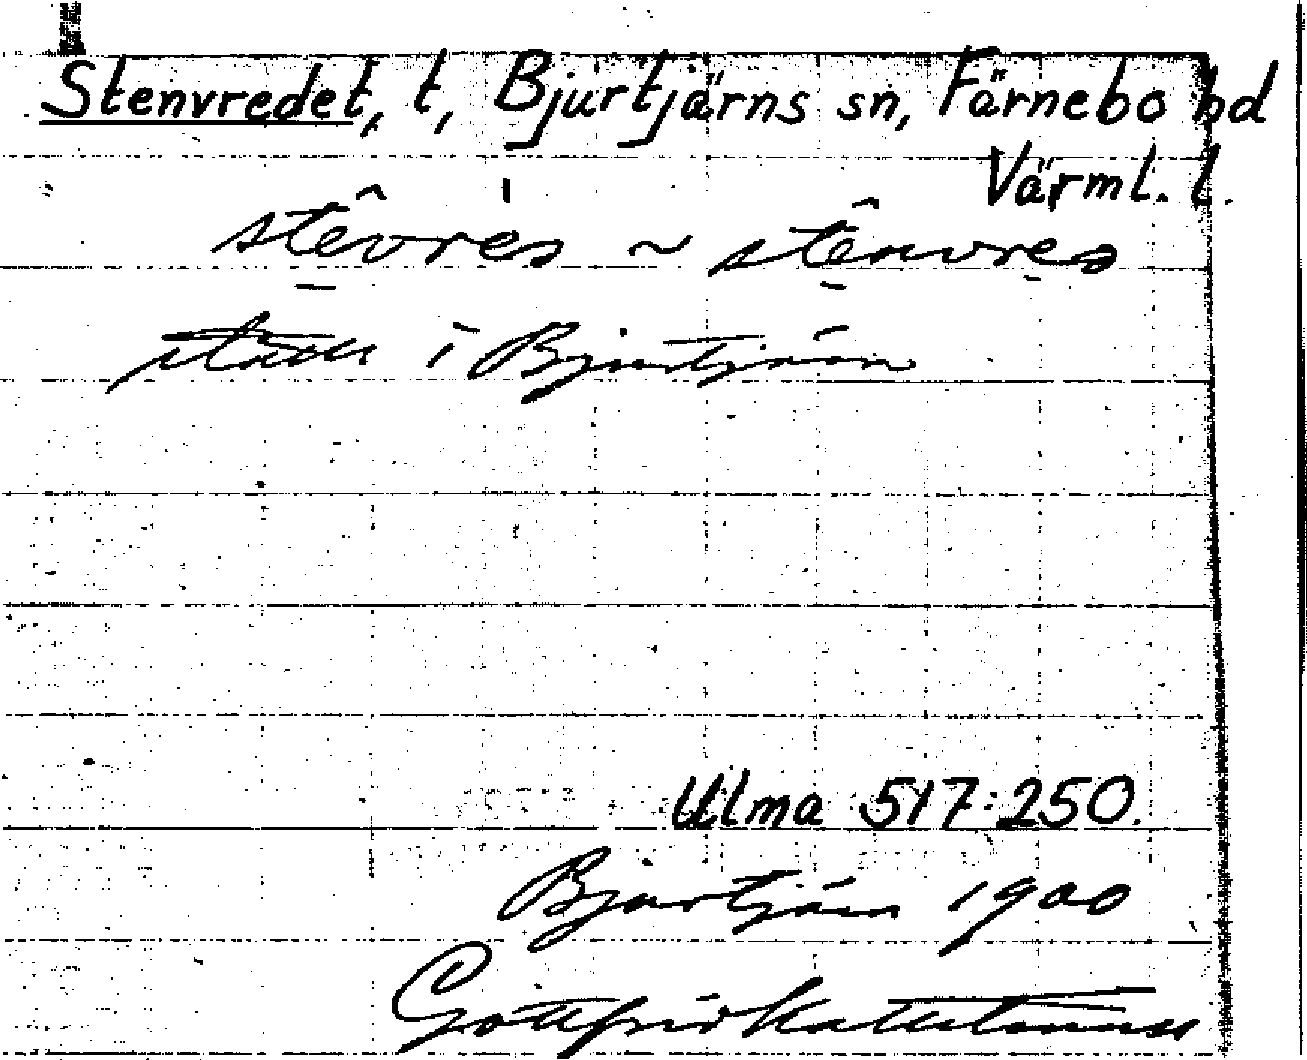 Stenvredet, t, Bjurtjärns sn, Färnebo hd
Värml. l.
stêvrès ~ stênvres
i Bjurtjärn
Ulma 517:250.
Bjurtjärn 1900
Gottfrid Kallstenius